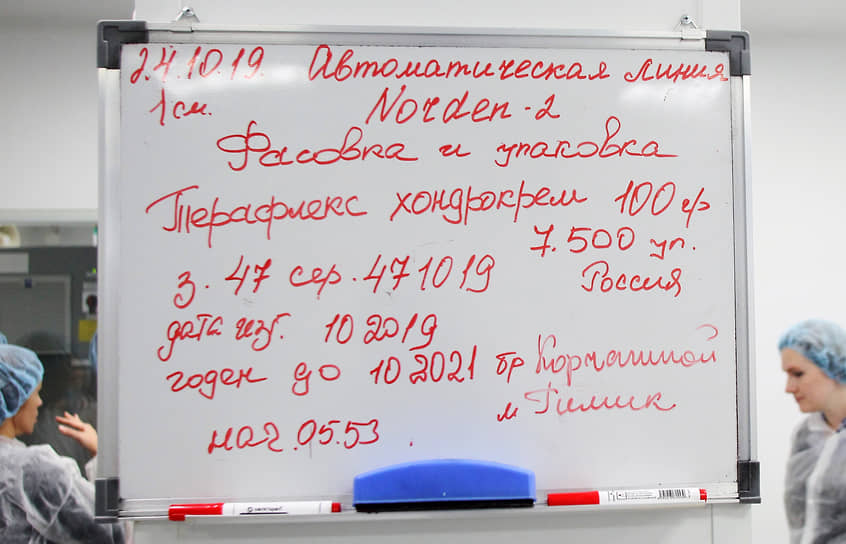 24.10.19. Автоматическая линия
1 см. Norden-2
Фасовка и упаковка
Терафлекс хондрокрем 100 гр
7.500 уп.
з. 47 сер. 471019 Россия
дата изг. 10 2019
годен до 10 2021 бр Корчагиной
м Гимик
нач. 05.53